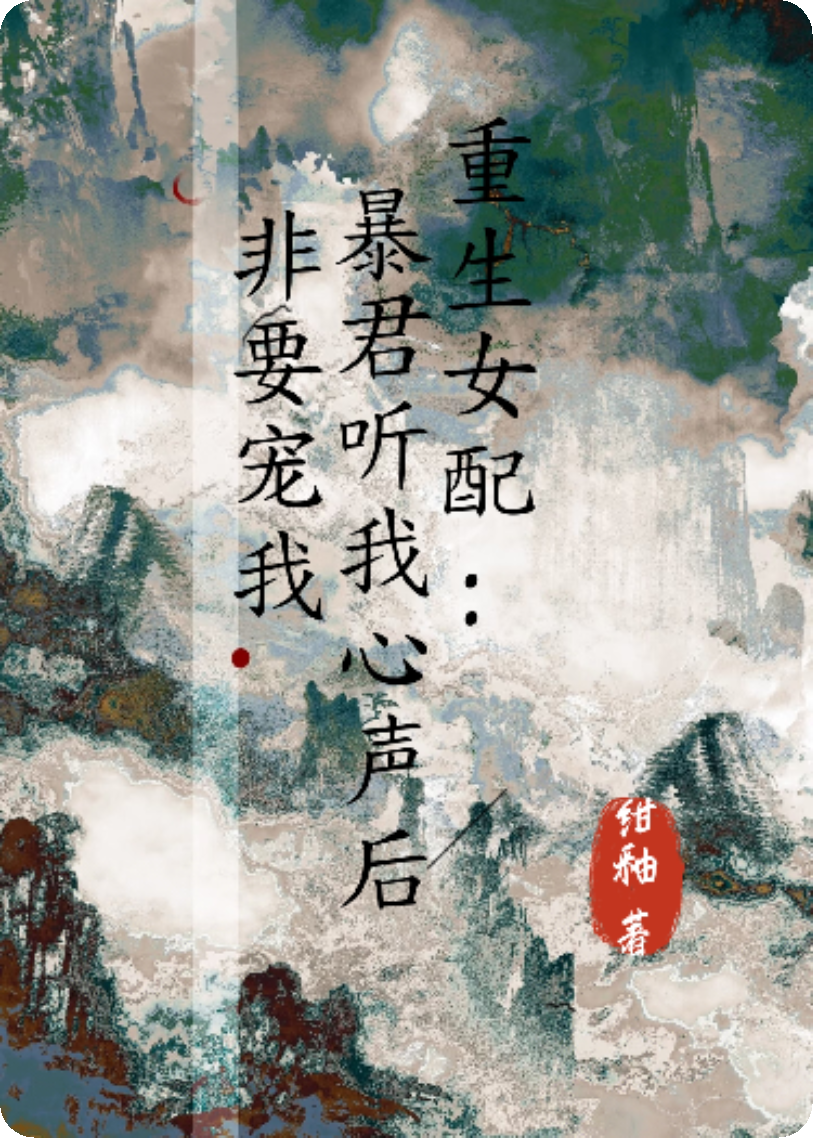 重生女配：
暴君听我心声后
非要宠我
绀釉 著